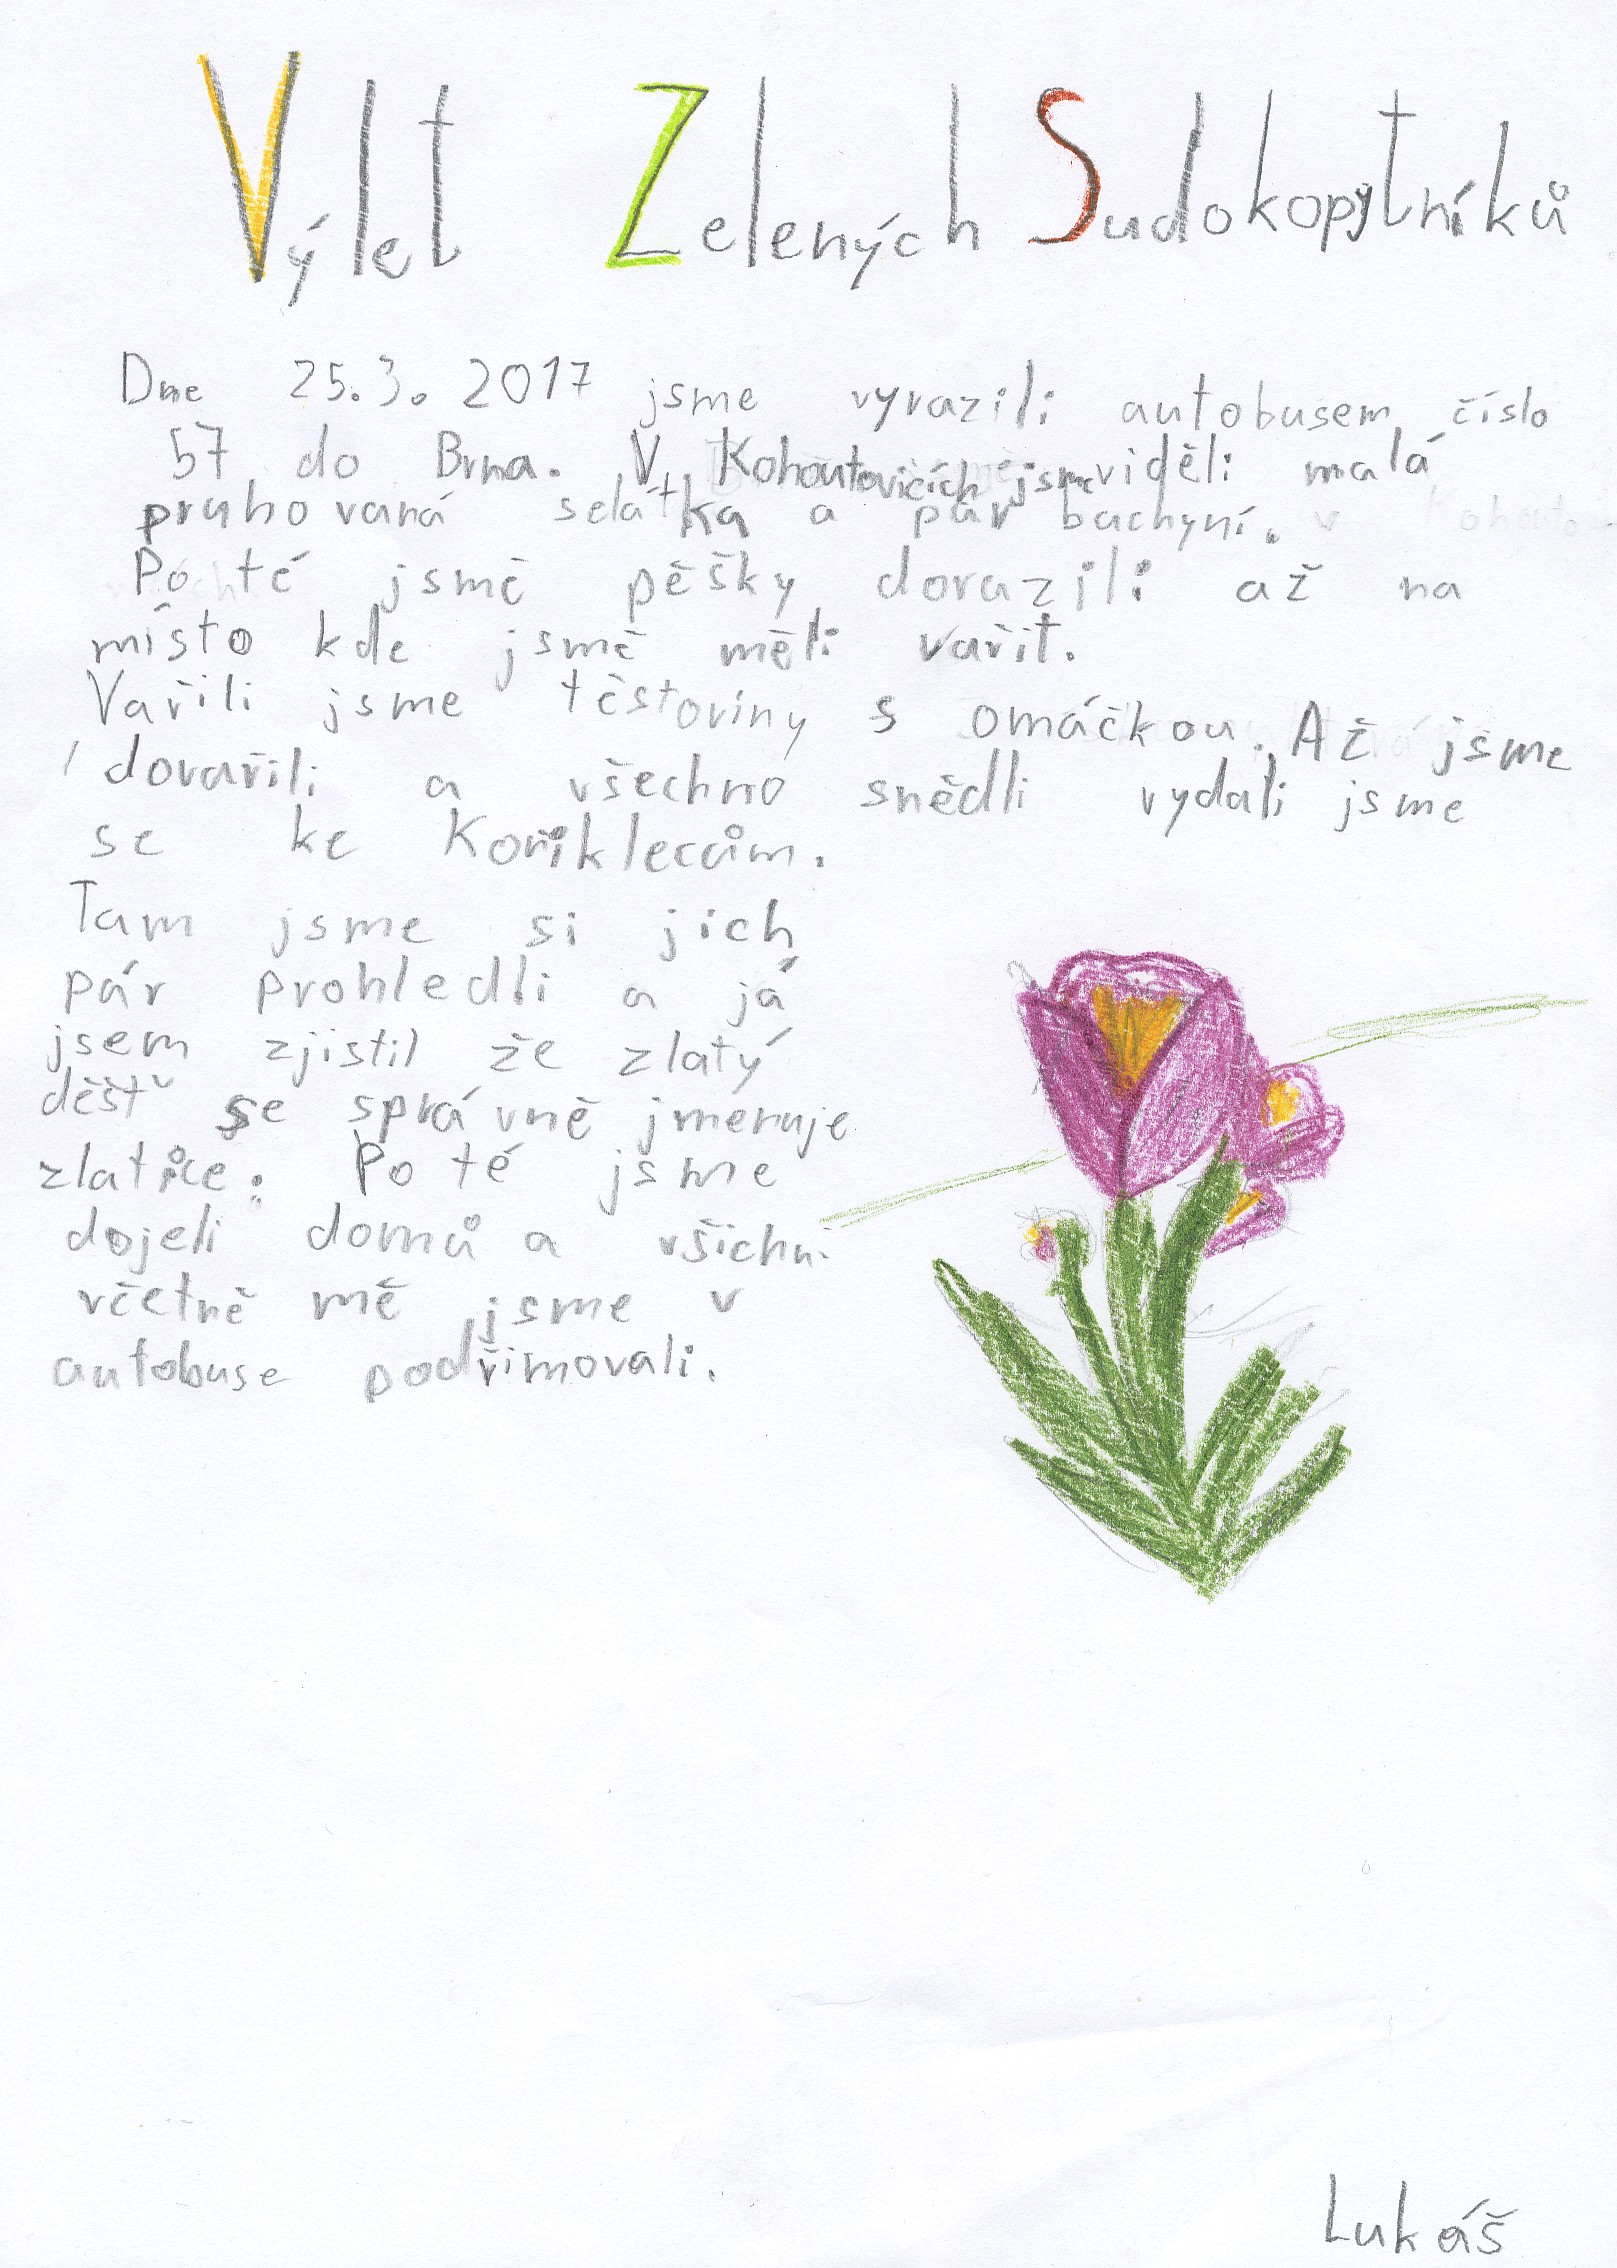 Výlet Zelených Sudokopytníků
Dne 25.3. 2017 jsme vyrazili autobusem číslo
57 do Brna. V Kohoutovicích jsme viděli malá
pruhovaná selátka a pár bachyní.
Po té jsmě pěšky dorazili až na
místo kde jsmě měli vařit.
Vařili jsme těstoviny s omáčkou. Až jsme
dovařili a všechno snědli vydali jsme
se ke Koniklecům.
Tam jsme si jich
pár prohledli a já
jsem zjistil že zlatý
děšť se správně jmenuje
zlatice. Po té jsme
dojeli domů a všichni
včetně mě jsme v
autobuse podřimovali.
Lukáš